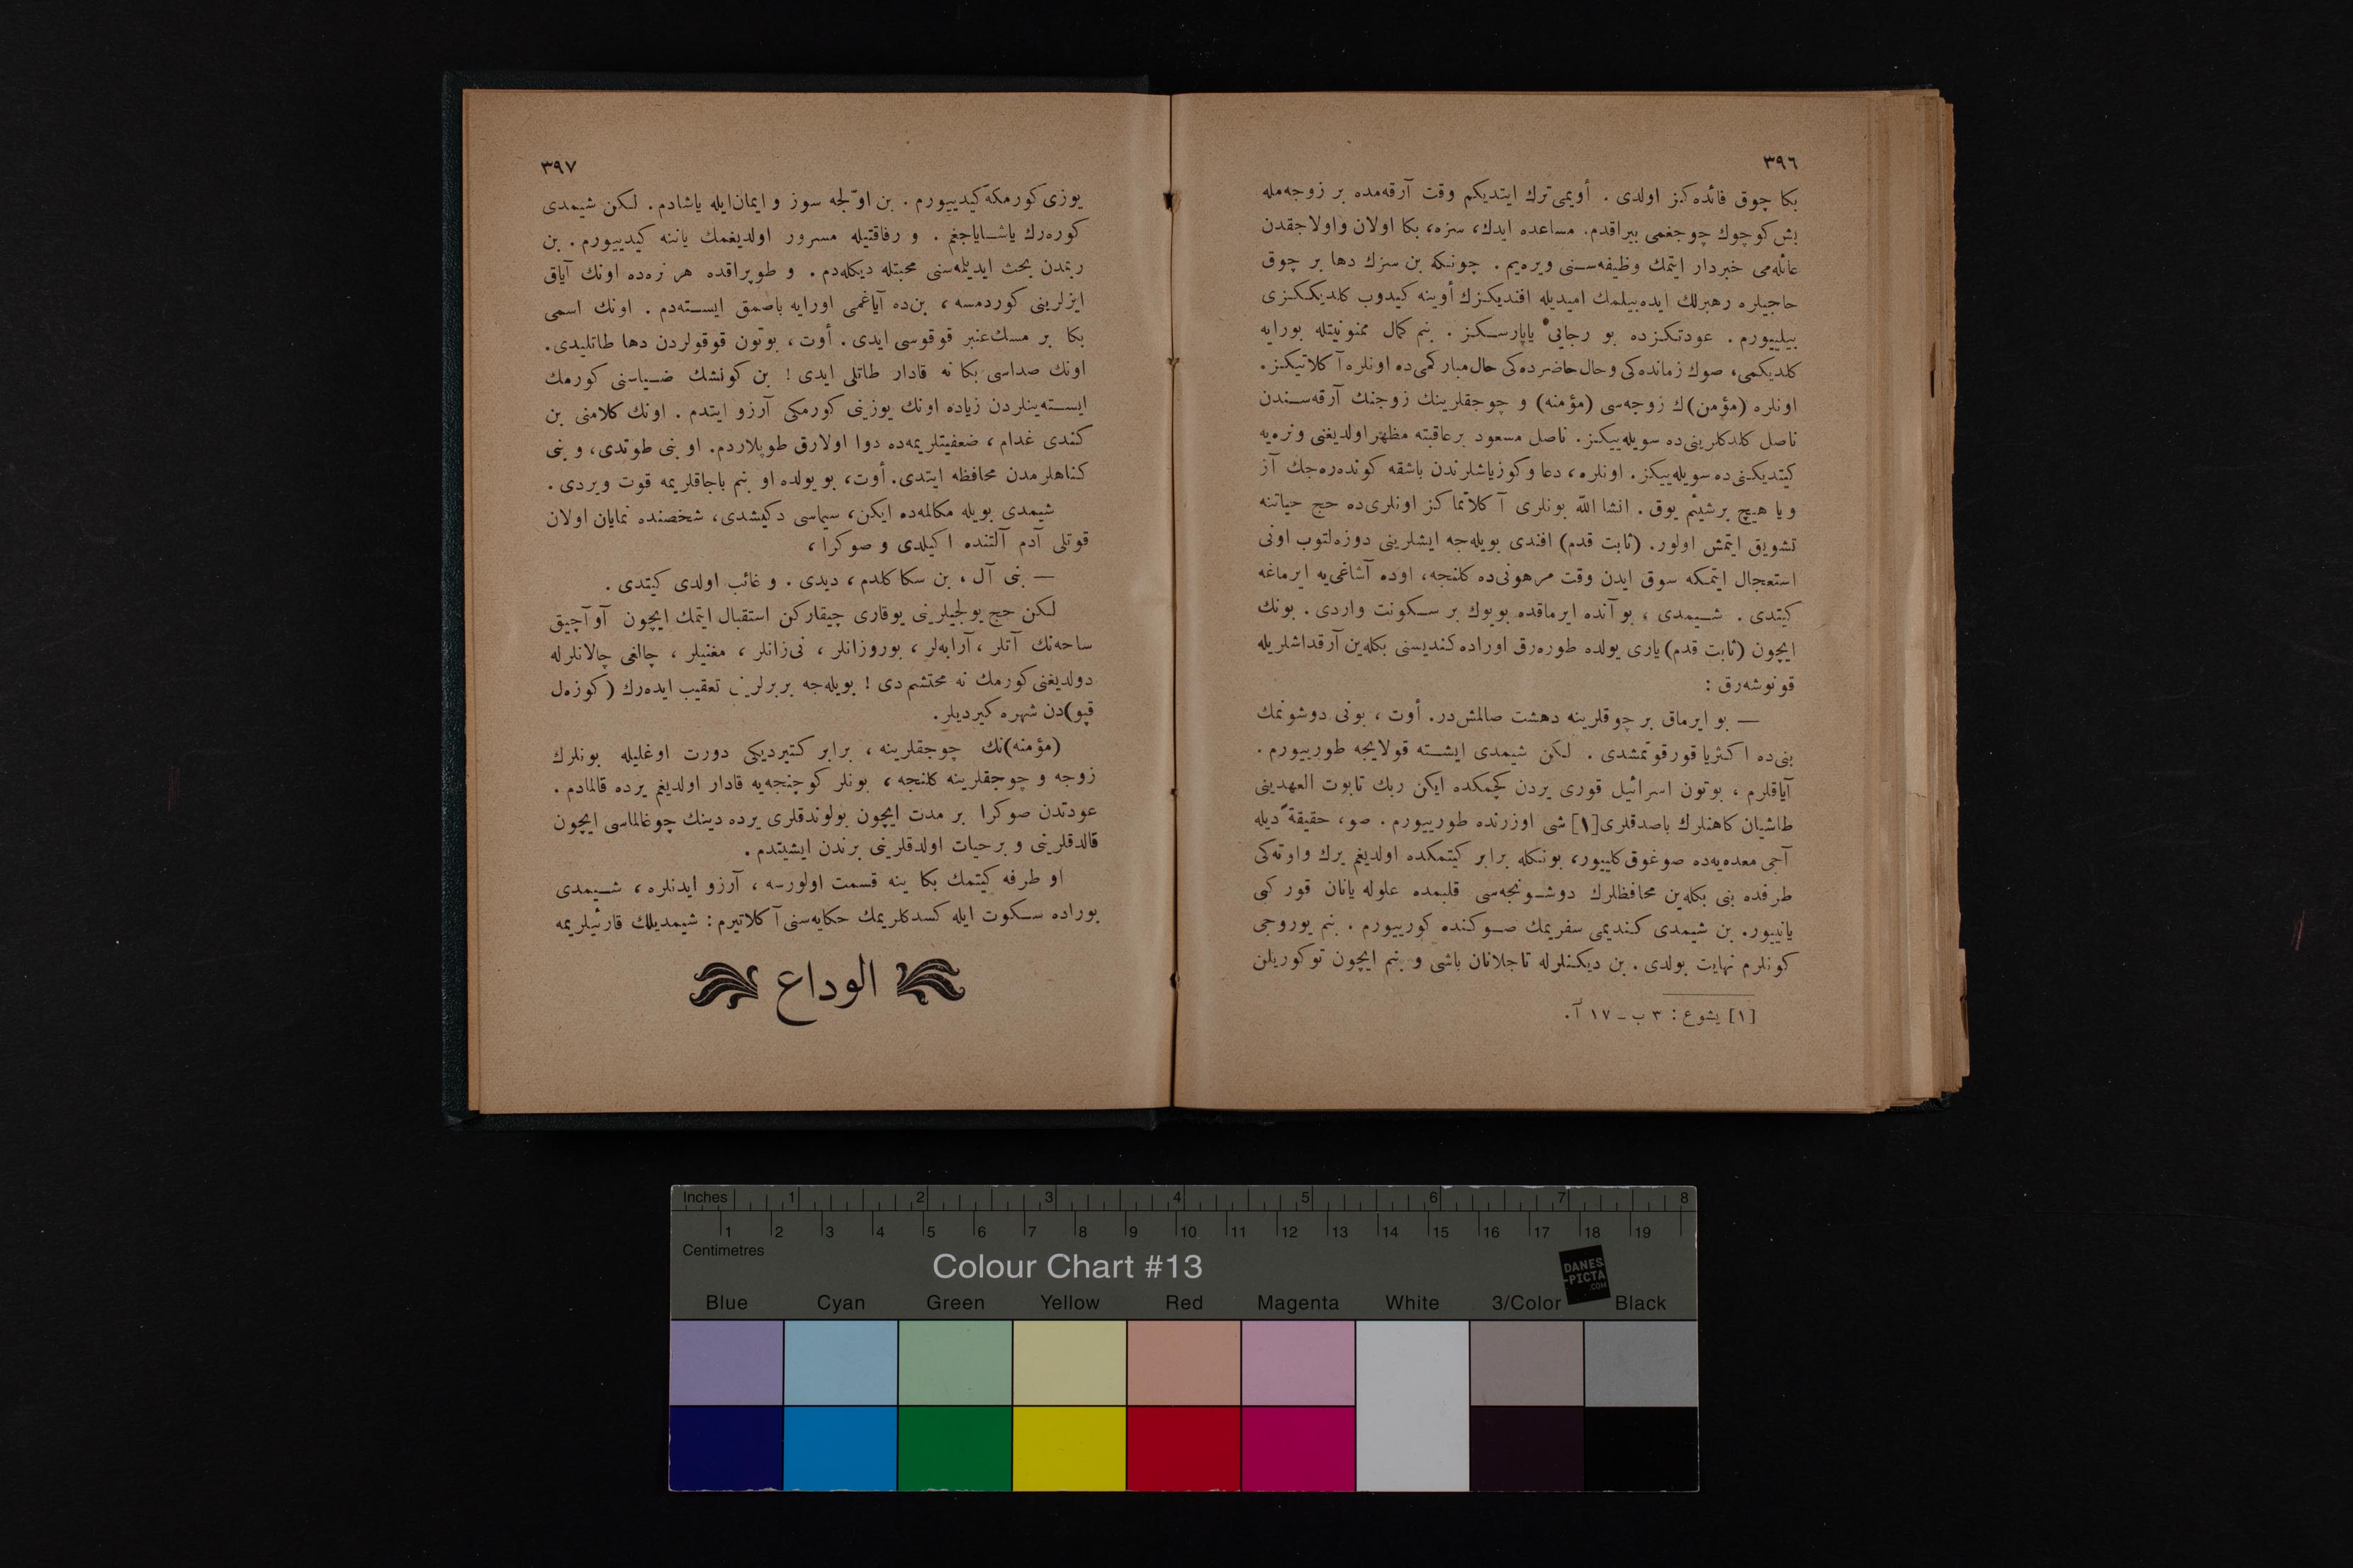 ٣٩٦
بكا چوق فائده‌كز اولدی . أويمی ترك ايتديكم وقت آرقه‌مده بر زوجه‌مله
بش كوچوك چوجغمی بيراقدم. مساعده ايدك، سزه، بكا اولان واولاجقدن
عائله‌می خبردار ايتمك وظيفه‌سنی ويره‌يم . چونكه بن سزك دها بر چوق
حاجيلره رهبرلك ايده‌بيلمك اميديله افنديكزك أوينه كيدوب كلديككزی
بيلييورم . عودتكزده بو رجايی ياپارسكز . بنم كمال ممنونيتله بورايه
كلديكمی، صوك زمانده‌كی وحال‌حاضرده‌كی حال‌مباركمی‌ده اونلره آكلاتيكز.
اونلره (مؤمن)ك زوجه‌سی (مؤمنه) و چوجقلرينك زوجنك آرقه‌سندن
ناصل كلدكلرينی‌ده سويله‌ييكز. ناصل مسعود برعاقبته مظهر اولديغنی ونره‌يه
كيتديكنی‌ده سويله‌ييكز. اونلره، دعا وكوزياشلرندن باشقه كونده‌ره‌جك آز
ويا هيچ برشيئم يوق . انشا الله بونلری آكلاتماكز اونلری‌ده حج حياتنه
تشويق ايتمش اولور. (ثابت قدم) افندی بويله‌جه ايشلرينی دوزه‌لتوب اونی
استعجال ايتمكه سوق ايدن وقت مرهونی‌ده كلنجه، اوده آشاغی‌يه ايرماغه
كيتدی . شيمدی ، بو آنده ايرماقده بويوك بر سكونت واردی . بونك
ايچون (ثابت قدم) ياری يولده طوره‌رق اوراده كنديسنی بكله‌ين آرقداشلريله
قونوشه‌رق :
— بو ايرماق بر چوقلرينه دهشت صالمش‌در. أوت ، بونی دوشونمك
بنی‌ده اكثريا قورقوتمشدی . لكن شيمدی ايشته قولايجه طورييورم .
آياقلرم ، بوتون اسرائيل قوری يردن كچمكده ايكن ربك تابوت العهدينی
طاشيان كاهنلرك باصدقلری[١] شی اوزرنده طورييورم . صو، حقيقةً ديله
آجی معده‌يه‌ده صوغوق كلييور، بونكله برابر كيتمكده اولديغم يرك واوته‌كی
طرفده بنی بكله‌ين محافظلرك دوشونجه‌سی قلبمده علوله يانان قور كبی
يانييور. بن شيمدی كنديمی سفريمك صوكنده كورييورم . بنم يوروجی
كونلرم نهايت بولدی . بن ديكنلرله تاجلانان باشی و بنم ايچون توكوريلن
[١] يشوع : ٣ ب ـ ١٧ آ.
٣٩٧
يوزی كورمكه كيدييورم . بن اوّلجه سوز و ايمان‌ايله ياشادم. لكن شيمدی
كوره‌رك ياشاياجغم . و رفاقتيله مسرور اولديغمك ياننه كيدييورم . بن
ربمدن بحث ايديلمه‌سنی محبتله ديكله‌دم . و طوپراقده هر نره‌ده اونك آياق
ايزلرينی كوردمسه ، بن‌ده آياغمی اورايه باصمق ايسته‌دم . اونك اسمی
بكا بر مسك‌عنبر قوقوسی ايدی . أوت ، بوتون قوقولردن دها طاتليدی.
اونك صداسی بكا نه قادار طاتلی ايدی ! بن كونشك ضياسنی كورمك
ايسته‌ينلردن زياده اونك يوزينی كورمكی آرزو ايتدم . اونك كلامنی بن
كندی غدام ، ضعفيتلريمه‌ده دوا اولارق طوپلاردم. او بنی طوتدی، و بنی
كناهلرمدن محافظه ايتدی. أوت، بو يولده او بنم باجاقلريمه قوت ويردی .
شيمدی بويله مكالمه‌ده ايكن، سيماسی دكيشدی، شخصنده نمايان اولان
قوتلی آدم آلتنده اكيلدی و صوكرا ،
— بنی آل ، بن سكا كلدم ، ديدی . و غائب اولدی كيتدی .
لكن حج يولجيلرينی يوقاری چيقاركن استقبال ايتمك ايچون آو آچيق
ساحه‌نك آتلر ، آرابه‌لر ، بوروزانلر ، نی‌زانلر ، مغنيلر ، چالغی چالانلرله
دولديغنی كورمك نه محتشم‌دی ! بويله‌جه بربرلرينی تعقيب ايده‌رك (كوزه‌ل
قپو)دن شهره كيرديلر.
(مؤمنه)نك چوجقلرينه ، برابر كتيرديكی دورت اوغليله بونلرك
زوجه و چوجقلرينه كلنجه ، بونلر كوچنجه‌يه قادار اولديغم يرده قالمادم .
عودتدن صوكرا بر مدت ايچون بولوندقلری يرده دينك چوغالماسی ايچون
قالدقلرينی و برحيات اولدقلرينی برندن ايشيتدم .
او طرفه كيتمك بكا ينه قسمت اولورسه ، آرزو ايدنلره ، شيمدی
بوراده سكوت ايله كسدكلريمك حكايه‌سنی آكلاتيرم : شيمديلك قارئيلريمه
الوداع
Inches 1 2 3 4 5 6 7 8
1 2 3 4 5 6 7 8 9 10 11 12 13 14 15 16 17 18 19
Centimetres
Colour Chart #13
DANES-PICTA.COM
Blue Cyan Green Yellow Red Magenta White 3/Color Black